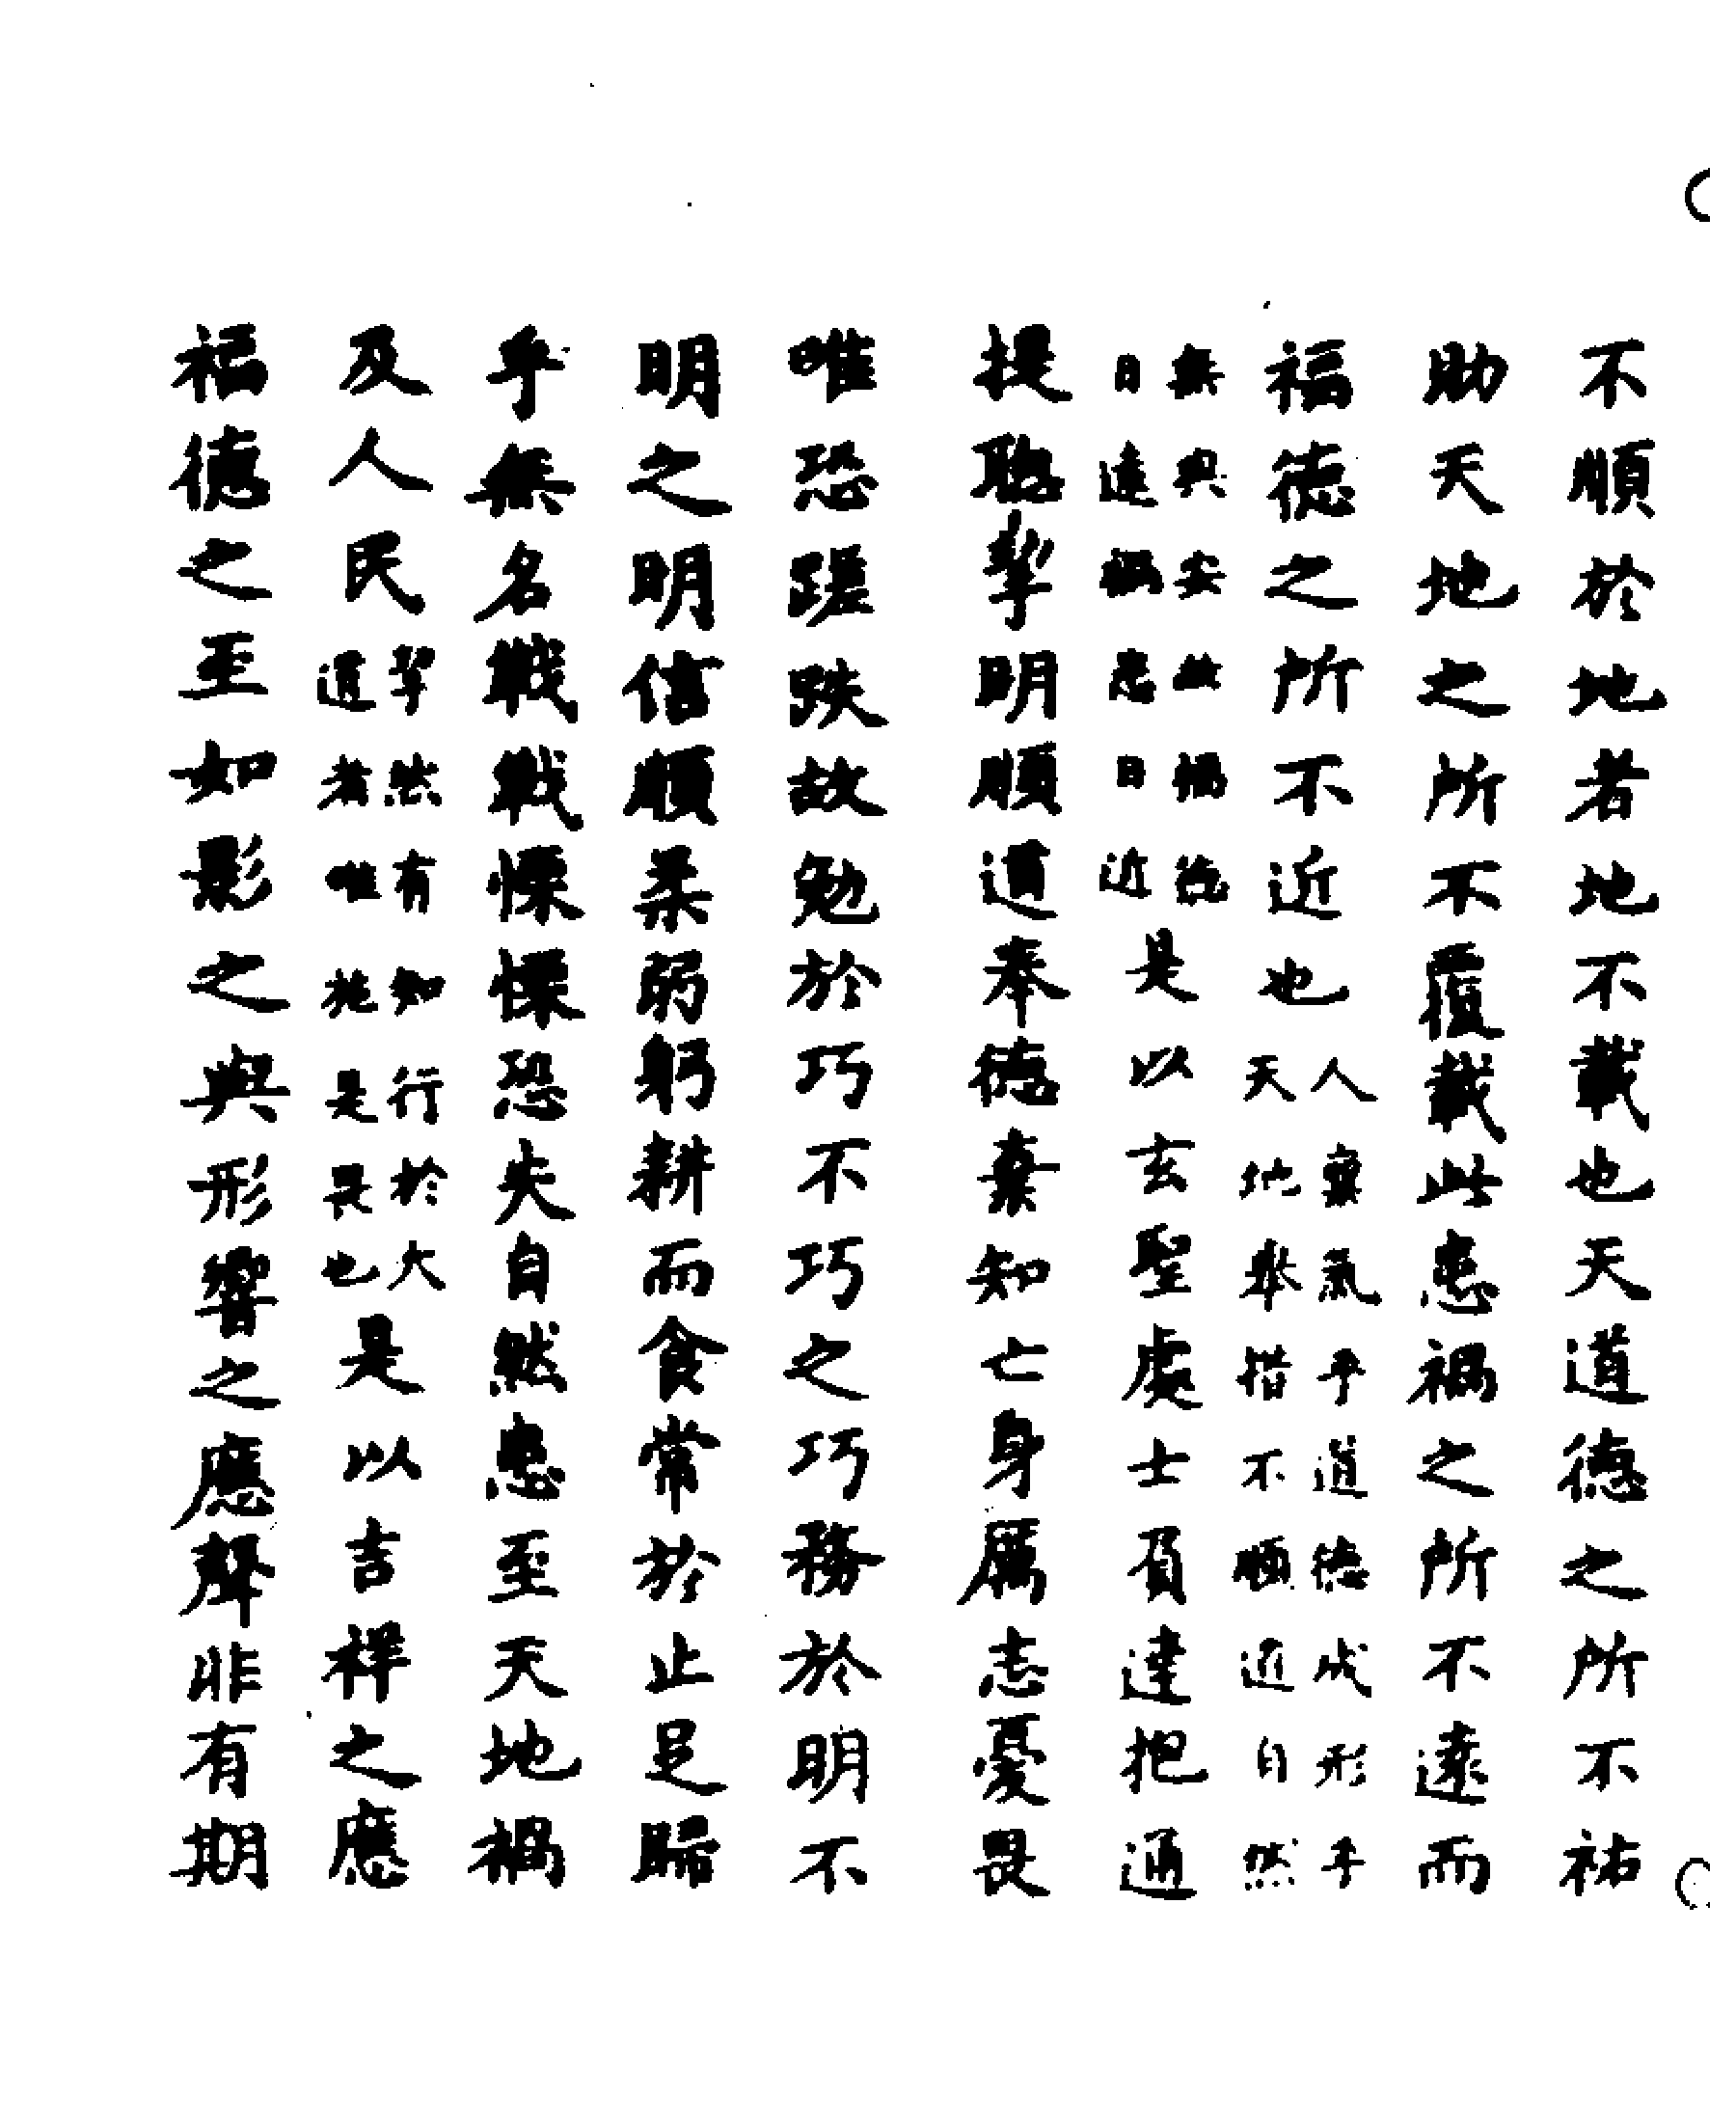 不順於地者地不載也天道德之所不祐
助天地之所不覆載此患禍之所不遠而
福德之所不近也人稟氣乎道德成形乎
天地舉措不順道自然
無與安故禍從
日遠禍患日近是以玄聖處士負達把通
提聰挈明順道奉德棄知亡身厲志憂畏
唯恐蹉跌故勉於巧不巧之巧務於明不
明之明信順柔弱躬耕而食常於止足歸
乎無名戰戰慄慄恐失自然患至天地禍
及人民挈然有知行於大
道者唯施是畏也是以吉祥之應
福德之至如影之與形響之應聲非有期